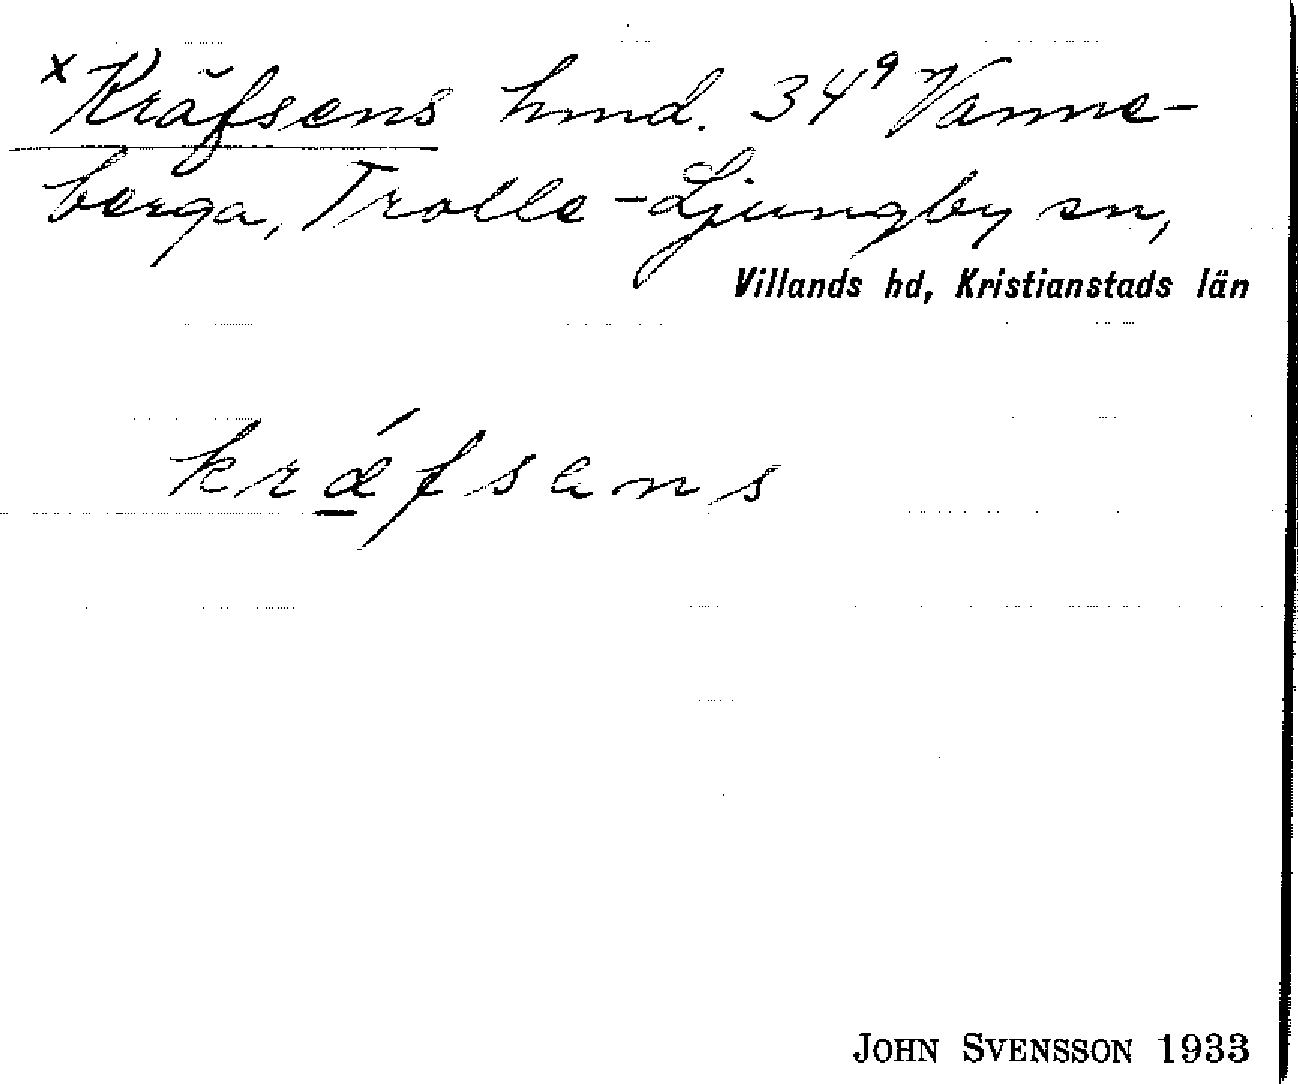 x Kräfsens hmd. 34⁹ Vanne-
berga, Trolle-Ljungby sn,
Villands hd, Kristianstads län
krǽ̱fsens
JOHN SVENSSON 1933